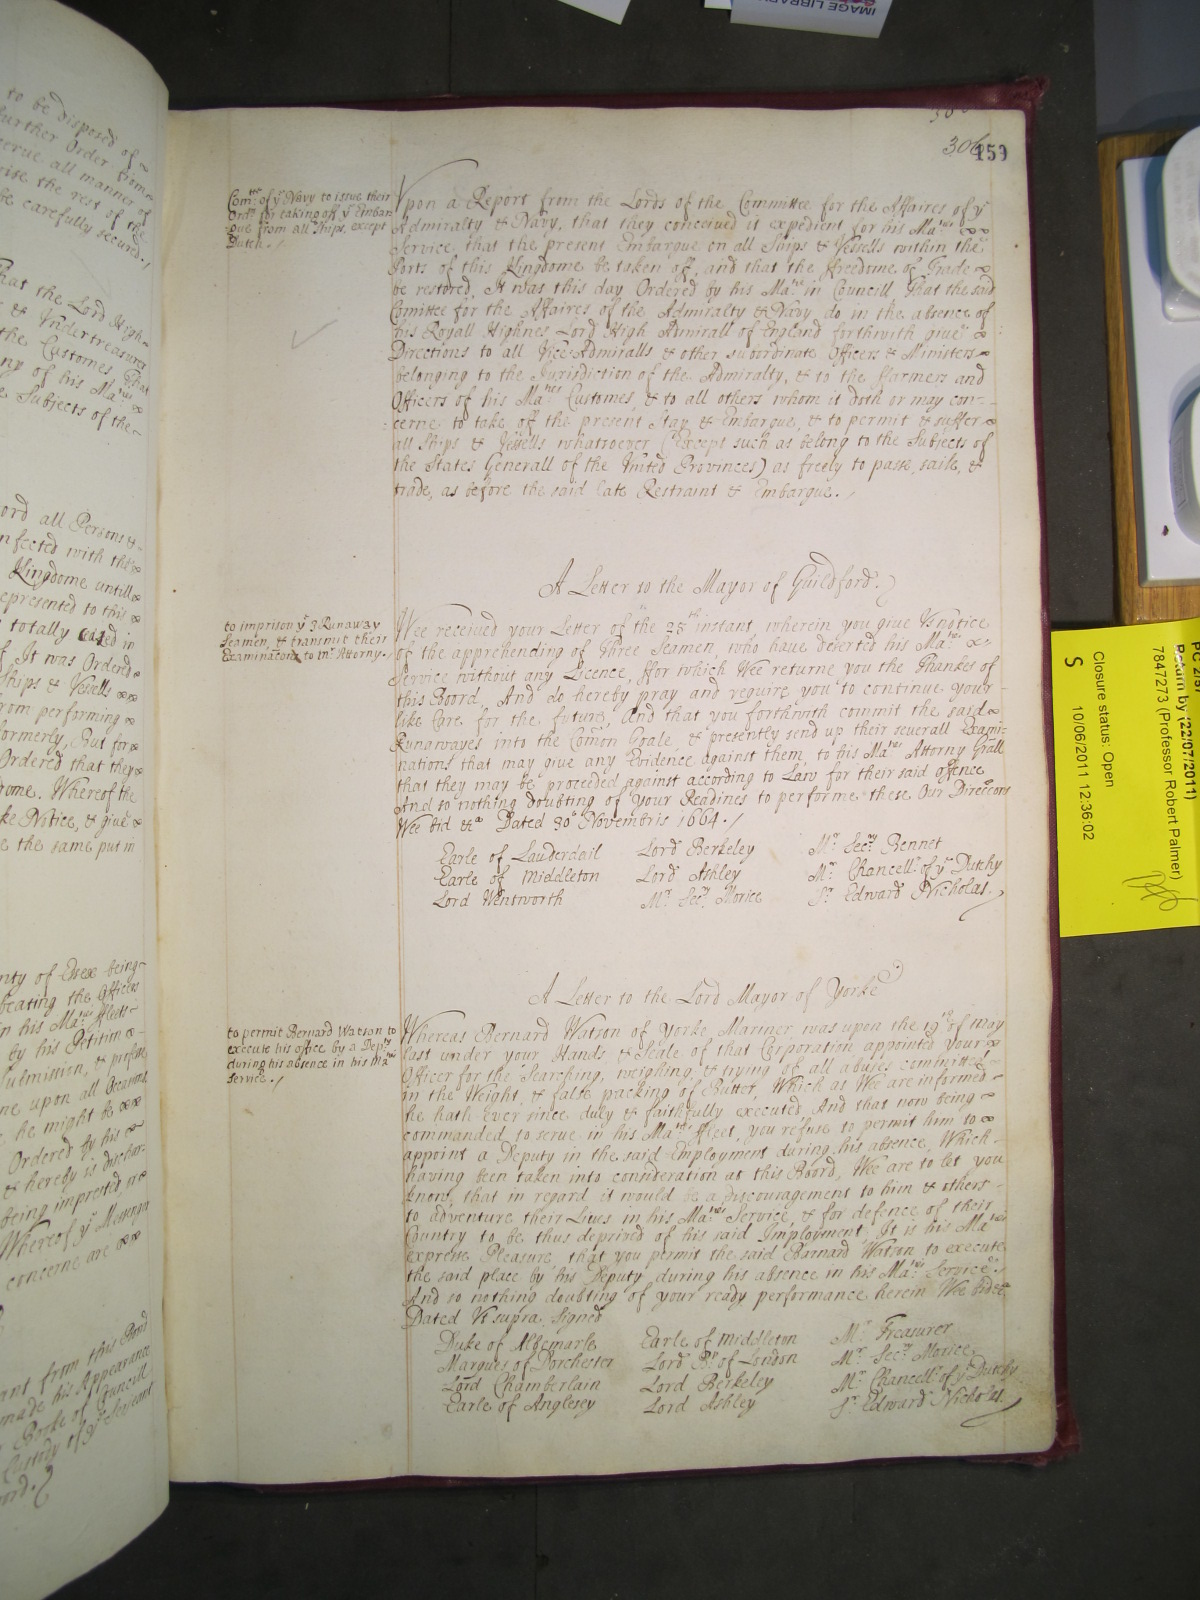 to be disposed of ~
further Order from
serve all manner of
wise the rest of the
be carefully secured./
That the Lord High
& Undertreasurer
the Customes That
any of his Ma.tys
Subjects of the
ord all Persons &
nfected with the
Kingdome untill
epresented to this
totally ceased in
of It was Ordered
Ships & Vessells
from performing
formerly, But for
Ordered that they
dome. Whereof the
ke Notice, & give
e the same put in
nty of Essex being
beating the Officers
in his Ma.tys ffleets
by his Petition
Submission, &
me upon all Occasions
he might be
Ordered by his
& hereby is dischar-
being imprested
Whereof ye Messenger
concerne are
ant from this Board
made his Appearance
Booke of Councill
Custody of ye Serjeant
306
459
Com.tee of ye Navy to issue their
Ord.rs for taking off ye Embar
que from all Ships, except
Dutch./
Vpon a Report from the Lords of the Committee for the Affaires of ye
Admiralty & Navy, that they conceived it expedient for his Ma.ties
Service, that the present Embargue on all Ships & Vessells within the
Ports of this Kingdome be taken off, and that the ffreedome of Trade
be restored, It was this day Ordered by his Ma.tie in Councill That the said
Comittee for the Affaires of the Admiralty & Navy do in the absence of
his Royall Highnes Lord High Admirall of England forthwith give
Directions to all Vice-Admiralls & other subordinate Officers & Ministers
belonging to the Jurisdiction of the Admiralty, & to the ffarmers and
Officers of his Ma.ties Customes, & to all others whom it doth or may con-
cerne to take off the present Stay & Embargue, & to permit & suffer
all Ships & Vessells whatsoever (Except such as belong to the Subjects of
the States Generall of the United Provinces) as freely to passe, saile, &
trade, as before the said late Restraint & Embargue./
A Letter to the Mayor of Guildford.
to imprison ye 3 Runaway
Seamen, & transmit their
Examinacons to mr Attorny.
Wee received your Letter of the 25th instant wherein you give Us notice
of the apprehending of Three Seamen, who have deserted his Ma.ties
Service without any Licence, ffor which Wee returne you the Thankes of
this Board, And do hereby pray and require you to continue your
like Care for the future, And that you forthwith commit the said
Runawayes into the Comon Goale, & presently send up their severall Exami-
nations that may give any Evidence against them to his Ma.ties Attorny Grall
that they may be proceeded against according to Law for their said offence
And so nothing doubting of your Readines to performe these Our Direccons
Wee bid &a Dated 30o Novembris 1664./
Earle of Lauderdail Lord Berkeley Mr Secry Bennet
Earle of Middleton Lord Ashley Mr Chancellr of ye Dutchy
Lord Wentworth Mr Secry Morice Sr Edward Nicholas.
A Letter to the Lord Mayor of Yorke
to permit Bernard Watson to
execute his office by a Depty
during his absence in his Ma.ties
Service./
Whereas Bernard Watson of Yorke Mariner was upon the 19th of May
last under your Hands & Seale of that Corporation appointed your
Officer for the Searching, weighing, & trying of all abuses committed
in the Weight, & false packing of Butter, Which as Wee are informed
he hath Ever since duly & faithfully executed, And that now being
commanded to serve in his Ma.ties ffleet, you refuse to permit him to
appoint a Deputy in the said Employment during his absence, Which
having been taken into consideration at this Board, Wee are to let you
know, that in regard it would be a discouragement to him & others
to adventure their Lives in his Ma.ties Service, & for defence of their
Country to be thus deprived of his said Imployment, It is his Ma.ties
expresse Pleasure, that you permit the said Barnard Watson to execute
the said place by his Deputy during his absence in his Ma.ties Service.
And so nothing doubting of your ready performance herein Wee bid &c
Dated Vt supra. Signed
Duke of Albemarle Earle of Middleton Mr Treasurer
Marques of Dorchester Lord Bp of London Mr Secry Morice
Lord Chamberlain Lord Berkeley Mr Chancellr of ye Dutchy
Earle of Anglesey Lord Ashley Sr Edward Nicholas.
IMAGE LIBRARY
Return by (22/07/2011)
7847273 (Professor Robert Palmer)
Closure status: Open
S 10/06/2011 12:36:02